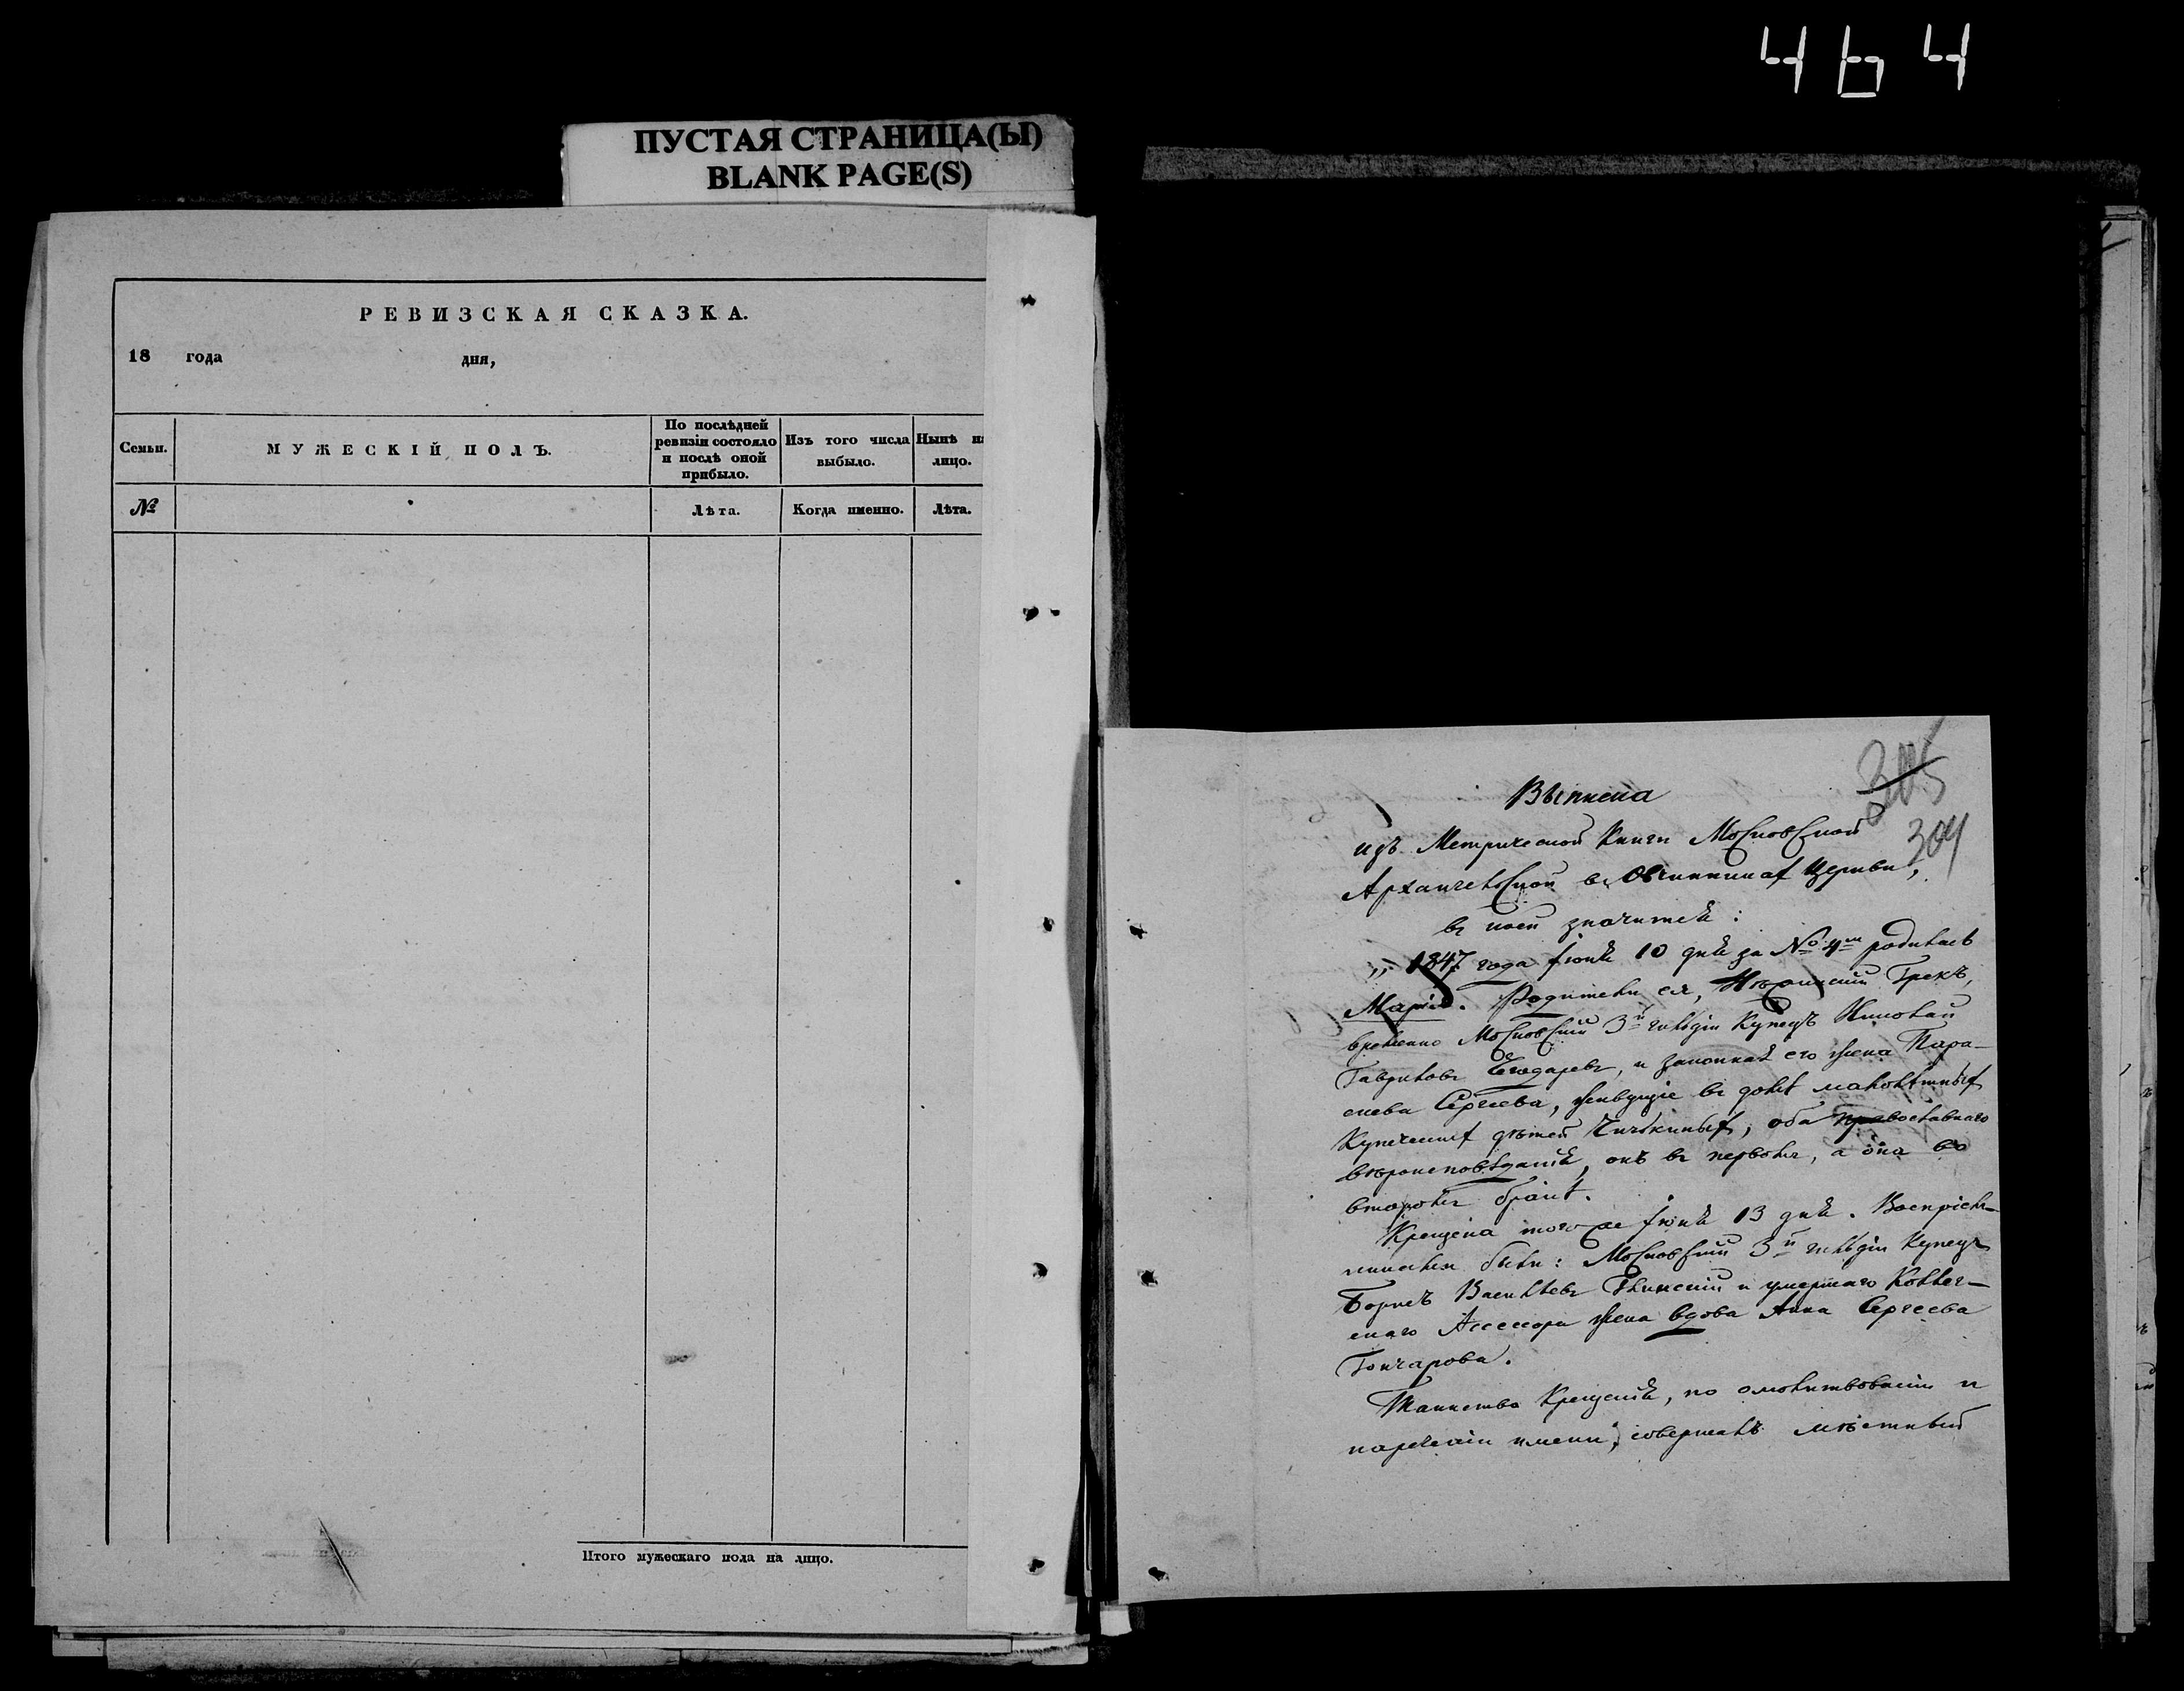 464
ПУСТАЯ СТРАНИЦА(Ы)
BLANK PAGE(S)
РЕВИЗСКАЯ СКАЗКА.
18 года дня,
Семьи.
МУЖЕСКІЙ ПОЛЪ.
По послѣдней ревизіи состояло и послѣ оной прибыло.
Изъ того числа выбыло.
Нынѣ на лицо.
№
Лѣта.
Когда именно.
Лѣта.
Итого мужескаго пола на лицо.
305
304
Выписка
изъ Метрической Книги Московской
Архангельской въ Овчинникахъ Церкви,
въ коей значится:
„1847 года Іюня 10 дня за № 4м родилась
Марія. Родители ея, Нѣжинскій Грекъ,
временно Московскій 3й гильдіи Купецъ Николай
Гавриловъ, и законная его жена Пара-
скева Сергѣева, живущіе въ домѣ малолѣтныхъ
Купеческихъ дѣтей, оба православнаго
вѣроисповѣданія, онъ въ первомъ, а она во
второмъ бракѣ.
Крещена того же Іюня 13 дня. Воспріем-
никами были: Московскій 3й гильдіи Купецъ
Борисъ Васильевъ Глинскій и умершаго Коллеж-
скаго Ассесора жена вдова Анна Сергѣева
Гончарова.
Таинство Крещенія, по омолитвованіи и
нареченіи имени, совершалъ мѣстный